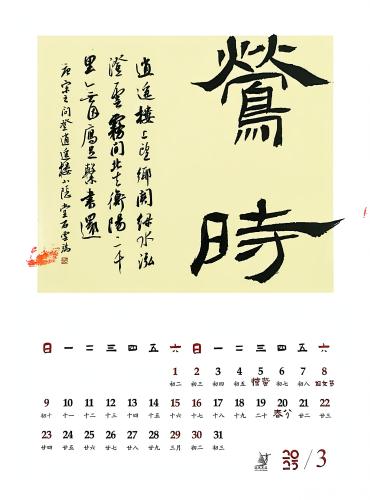 鶯時
逍遥樓上望鄉關緑水泓
澄雲霧間北去衡陽二千
里無因雁足繫書還
唐宋之問登逍遥樓小隱堂石雲瑞
日 一 二 三 四 五 六 日 一 二 三 四 五 六
1 2 3 4 5 6 7 8
初二 初三 初四 初五 惊蛰 初七 初八 妇女节
9 10 11 12 13 14 15 16 17 18 19 20 21 22
初十 十一 十二 十三 十四 十五 十六 十七 十八 十九 二十 春分 廿二 廿三
23 24 25 26 27 28 29 30 31
廿四 廿五 廿六 廿七 廿八 廿九 三月 初二 初三
2025/3